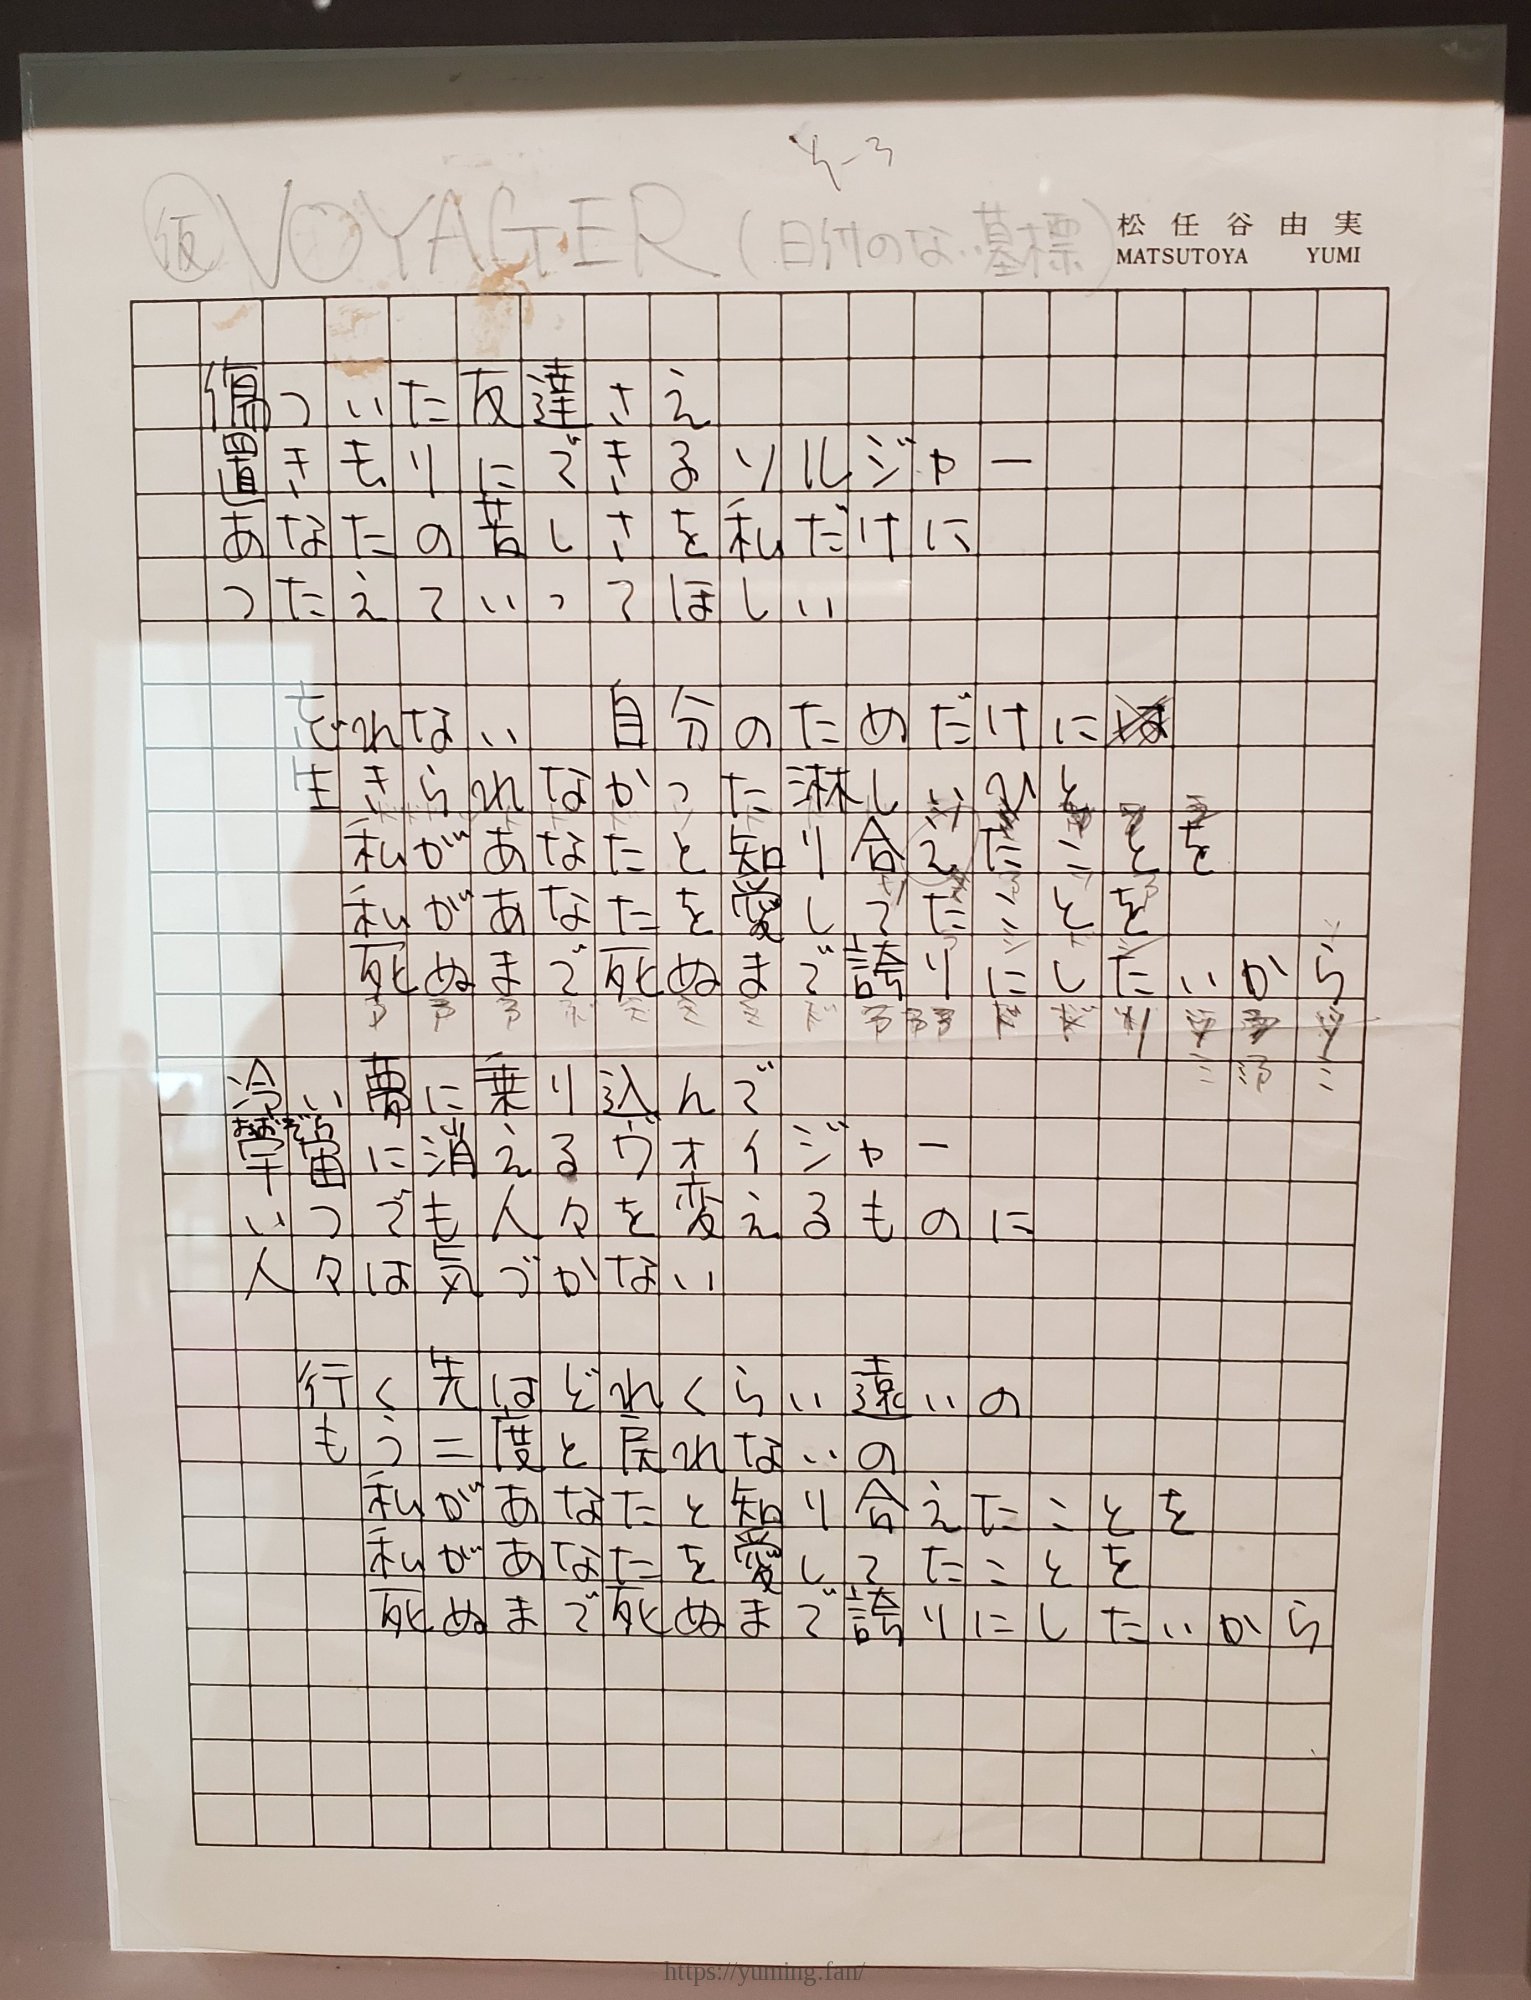 仮 VOYAGER (日付のない墓標)
松任谷由実
MATSUTOYA YUMI
傷ついた友達さえ
置きもりにできるソルジャー
あなたの苦しさを私だけに
つたえていってほしい
忘れない 自分のためだけに
生きられなかった淋しいひと
私があなたと知り合えたことを
私があなたを愛してたことを
死ぬまで死ぬまで誇りにしたいから
冷い夢に乗り込んで
おおぞら
宇宙に消えるヴォイジャー
いつでも人々を変えるものに
人々は気づかない
行く先はどれくらい遠いの
もう二度と戻れないの
私があなたと知り合えたことを
私があなたを愛してたことを
死ぬまで死ぬまで誇りにしたいから
https://yuming.fan/